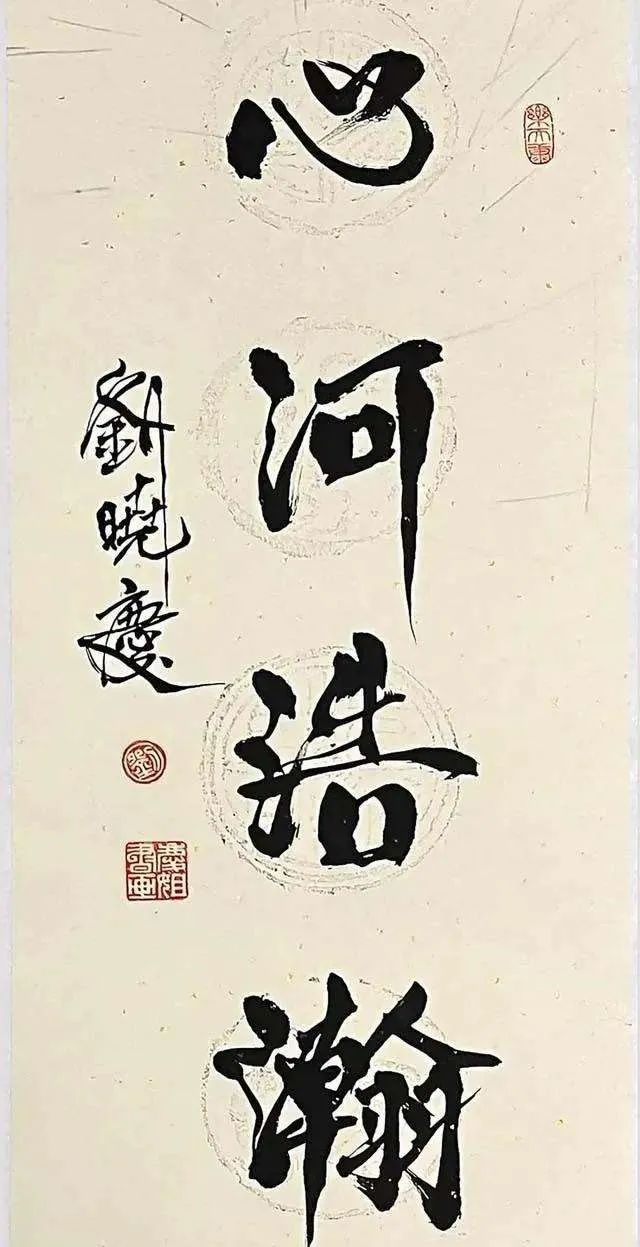 心河浩瀚
劉曉慶
劉
慶姐書画